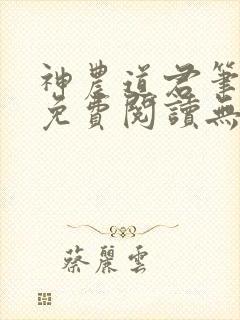 神農道君筆
免費閱讀無
蔡麗雲